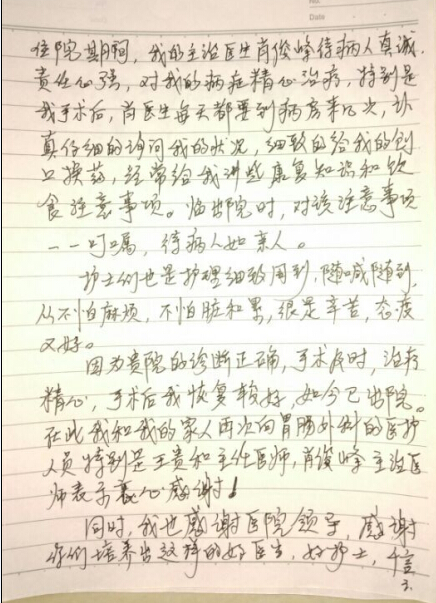 No.
Date
住院期间，我的主治医生肖俊峰待病人真诚
责任心强，对我的病症精心治疗，特别是
我手术后，肖医生每天都要到病房来几次，认
真仔细的询问我的状况，细致的给我的创
口换药，经常给我讲些康复知识和饮
食注意事项。临出院时，对该注意事项
一一叮嘱，待病人如亲人。
护士们也是护理细致周到，随喊随到，
从不怕麻烦，不怕脏和累，很是辛苦，态度
又好。
因为贵院的诊断正确，手术及时，治疗
精心，手术后我恢复较好，如今已出院。
在此我和我的家人再次向胃肠外科的医护
人员特别是王贵和主任医师，肖俊峰主治医
师表示衷心感谢！
同时，我也感谢医院领导，感谢
你们培养出这样的好医生，好护士，信